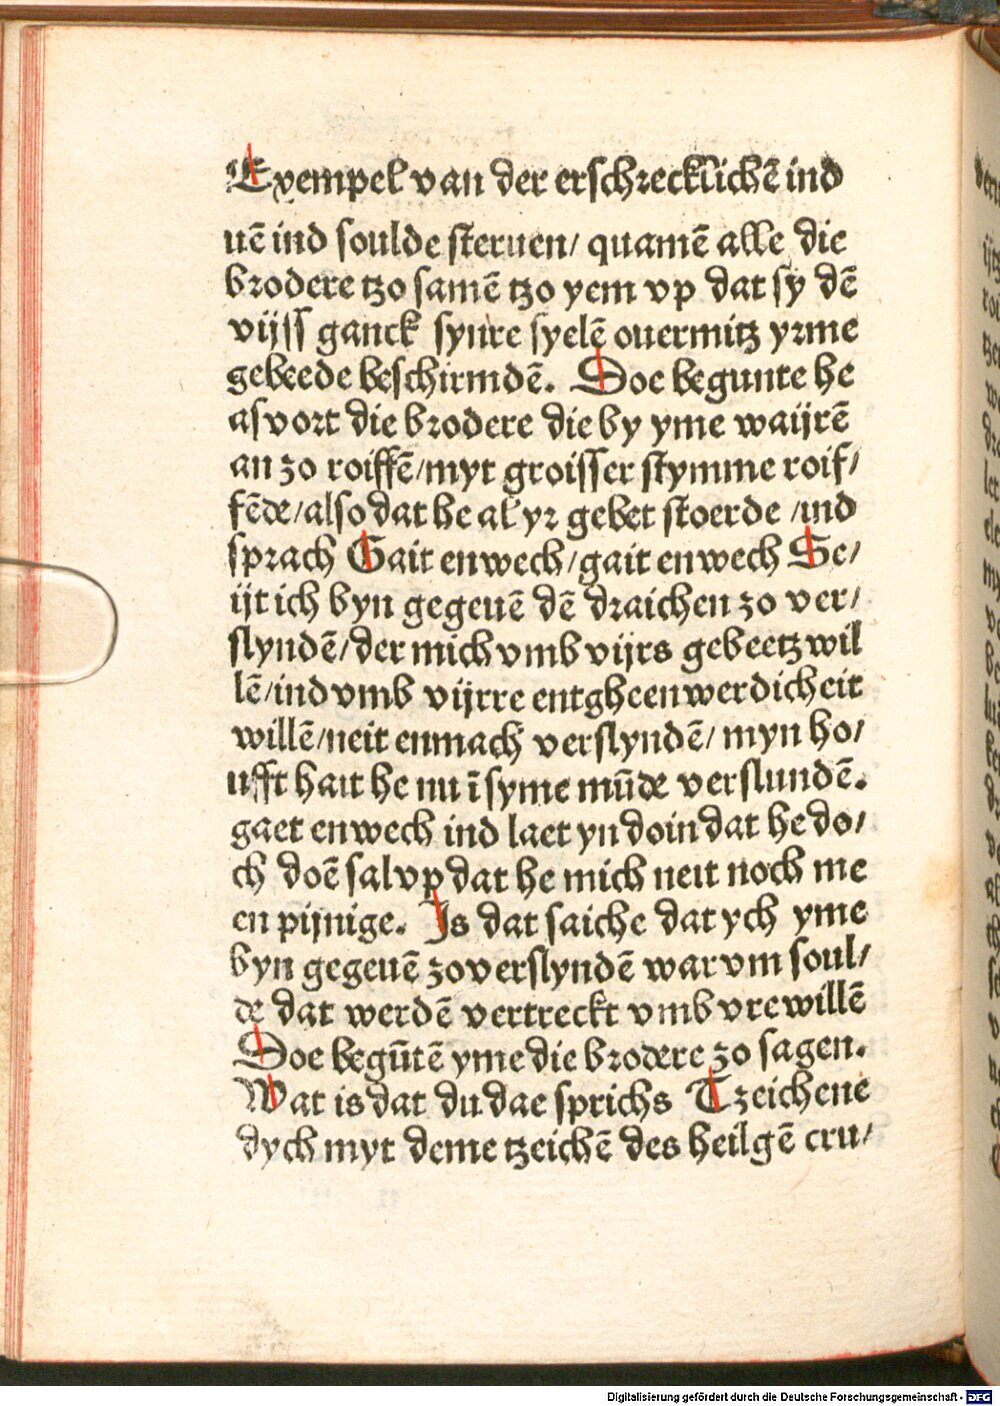 Exempel van der erschrecklichē ind
uē ind soulde steruen/ quamē alle die
brodere tzo samē tzo yem vp dat sy dē
vijss ganck synre syelē ouermitz yrme
gebeede beschirmdē. Doe begunte he
asvort die brodere die by yme waijrē
an zo roiffē/myt groisser stymme roif/
fēde/also dat he al yr gebet stoerde /ind
sprach Gait enwech/gait enwech Se/
ijt ich byn gegeuē dē draichen zo ver/
slyndē/der mich vmb vijrs gebeetz wil
lē/ind vmb vijrre entgheenwerdicheit
willē/neit enmach verslyndē/ myn ho/
ufft hait he nu ī syme mūde verslundē.
gaet enwech ind laet yn doin dat he do/
ch doē sal vp dat he mich neit noch me
en pijnige. Is dat saiche dat ych yme
byn gegeuē zo verslyndē war vm soul/
de dat werdē vertreckt vmb vre willē
Doe begūtē yme die brodere zo sagen.
Wat is dat du dae sprichs Tzeichene
dych myt deme tzeichē des heilgē cru/
Digitalisierung gefördert durch die Deutsche Forschungsgemeinschaft - DFG